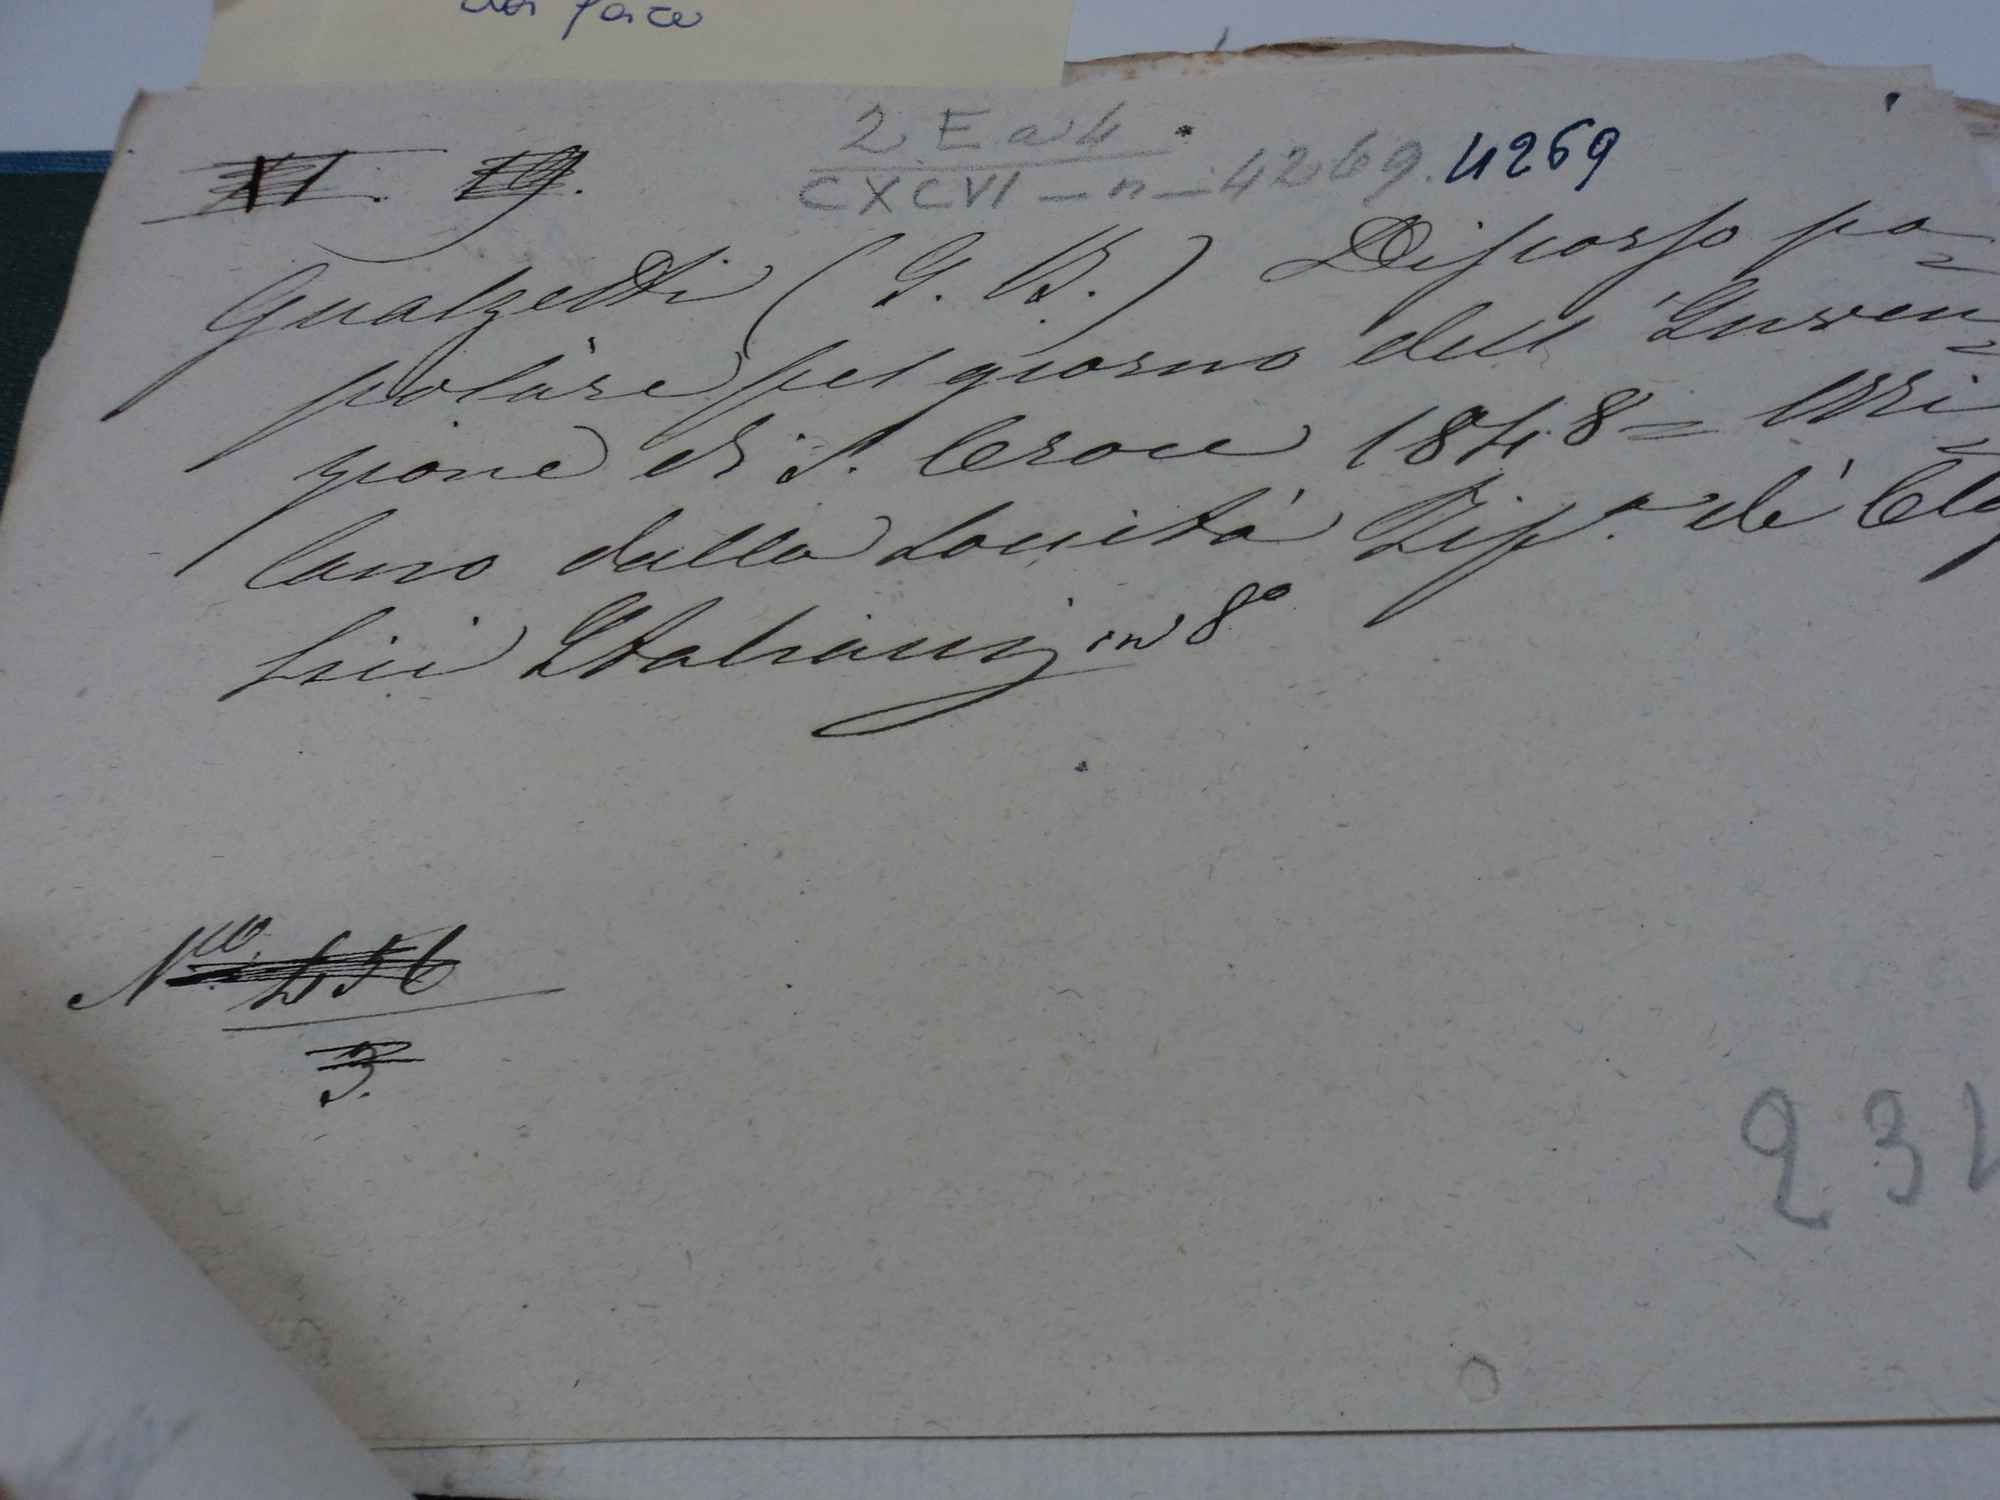 XI. 19.
2 E a 4
CXCVI - n - 4269. 4269
Gualzetti (G. B.) Discorso po=
polare pel giorno dell'Inven=
zione di S. Croce 1848 = Mi=
lano dalla Società Tip.ª de' Clas
sici Italiani in 8º
N.ro 456
3.
23